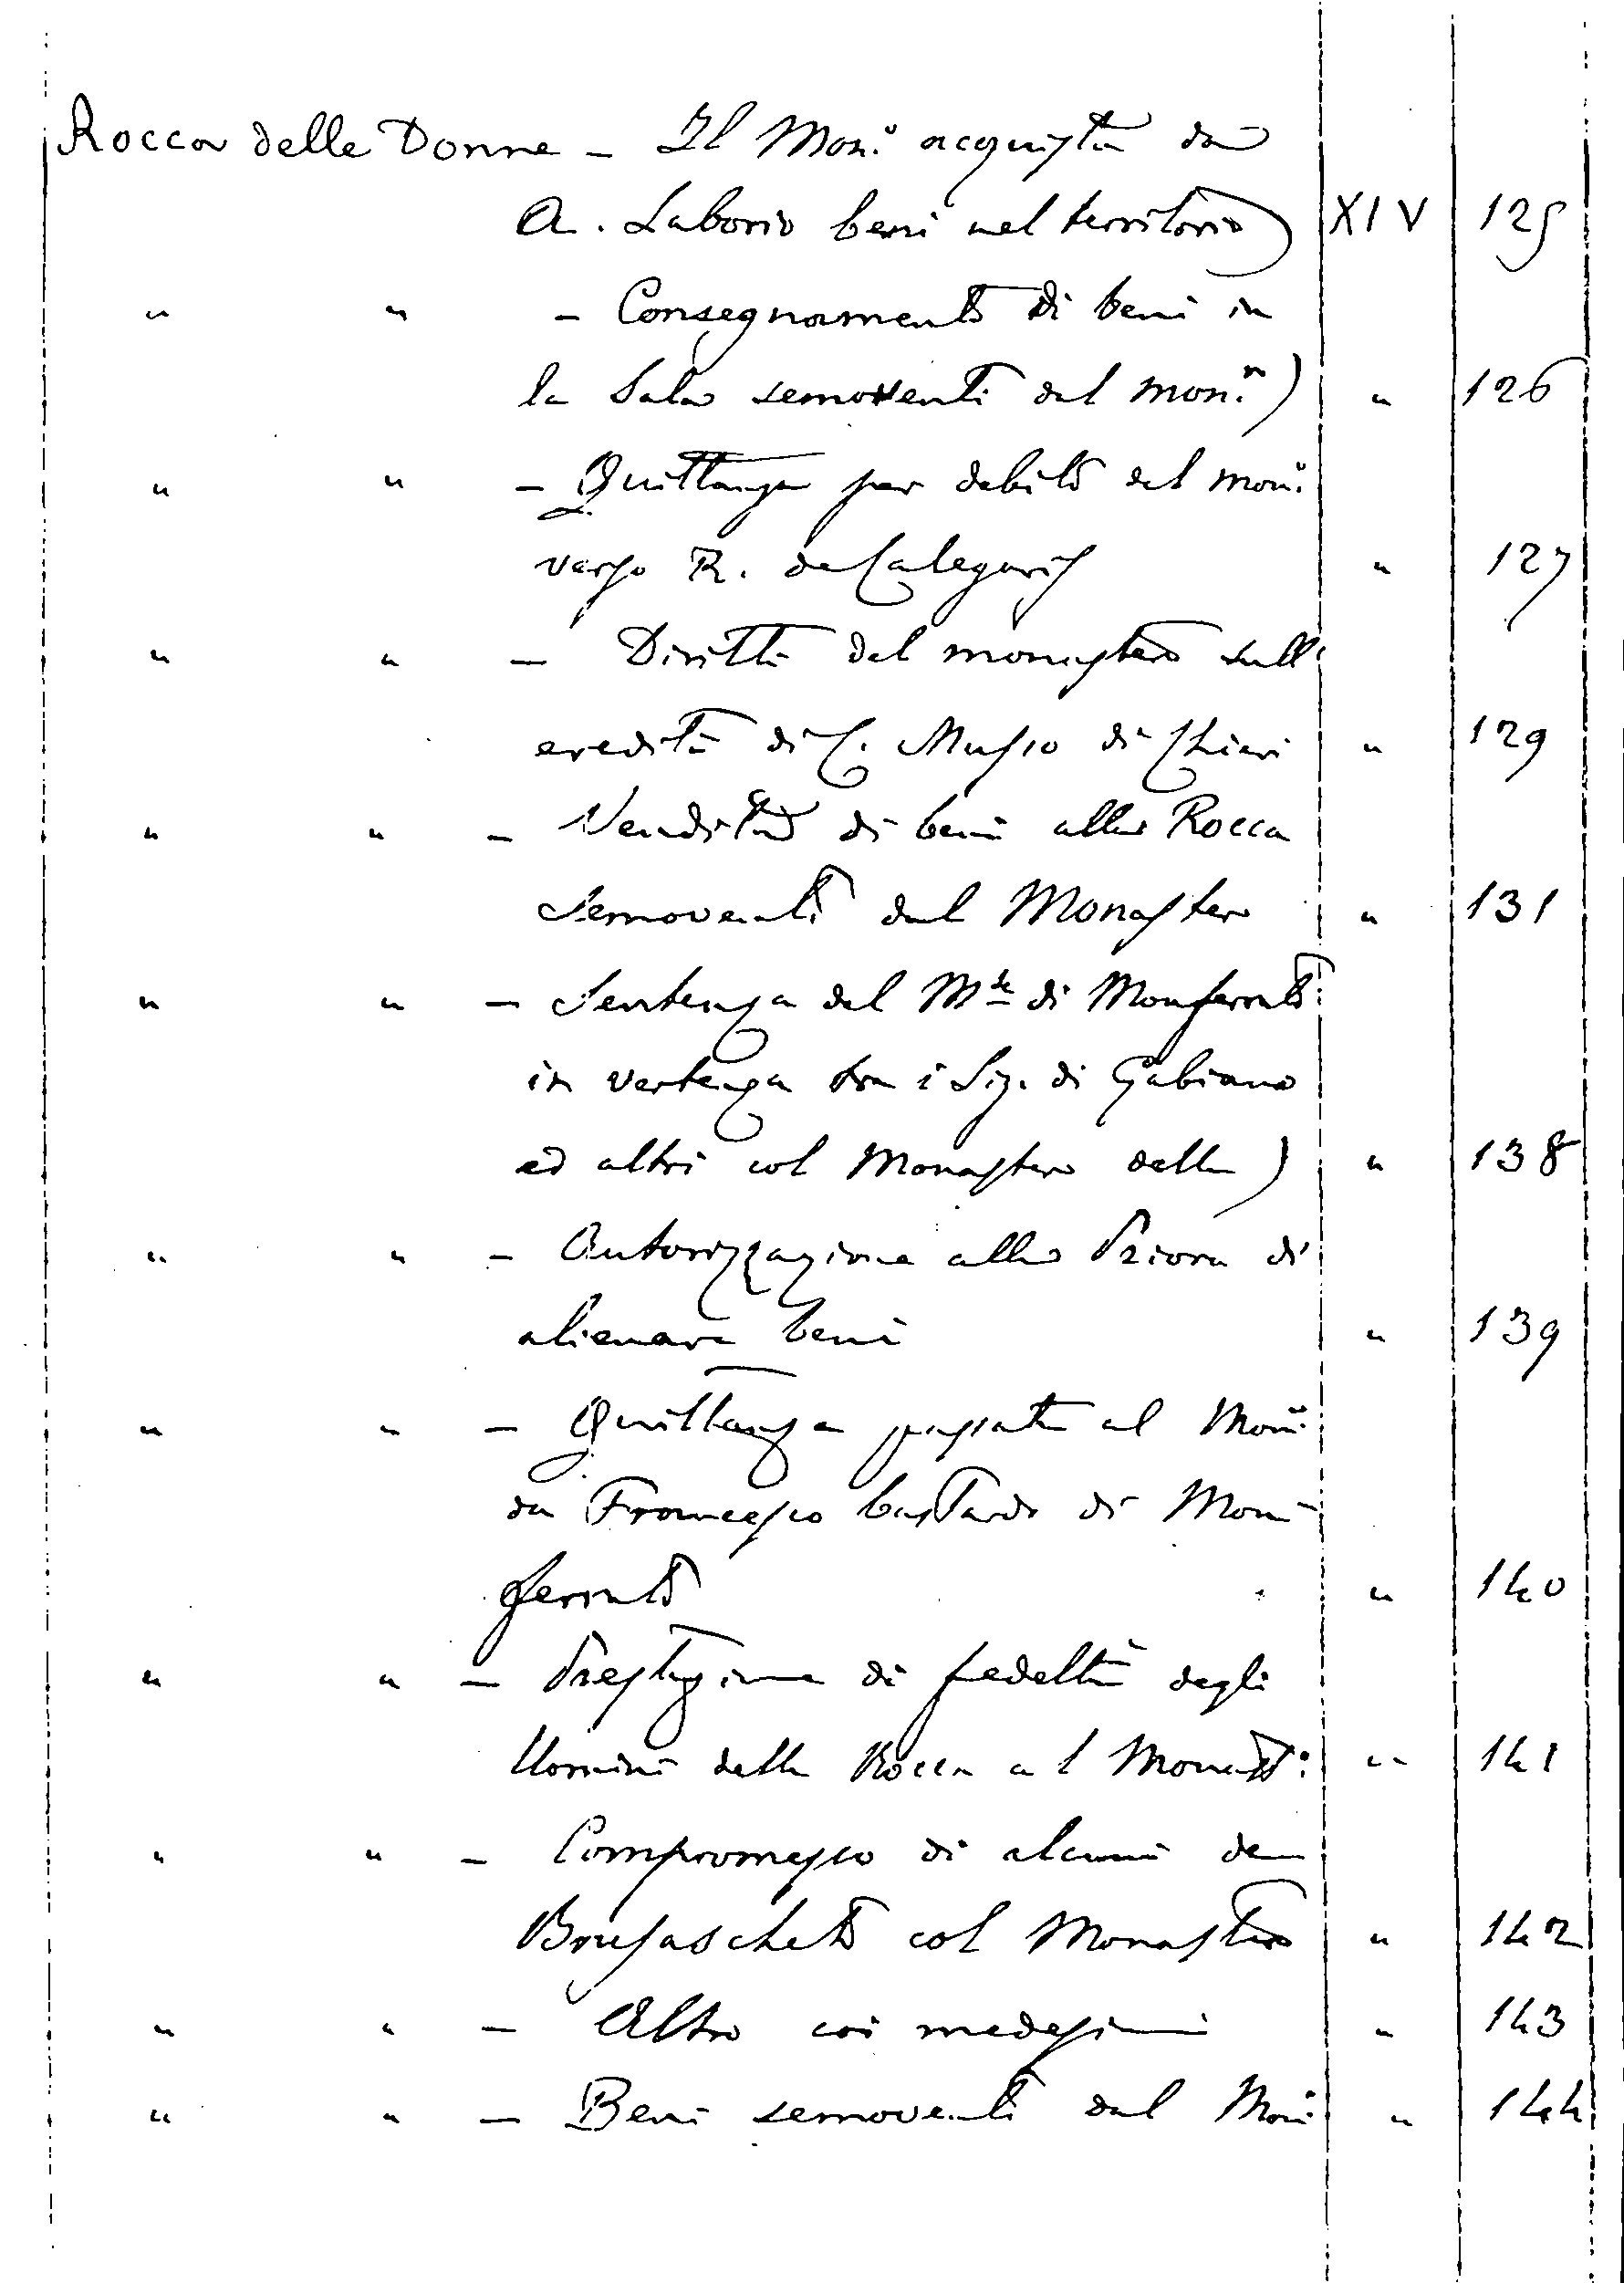 Rocca delle Donne – Il Mon.o acquista da
A. Laborio beni nel territorio) XIV 125
" " – Consegnamento di beni in
la Sala semoventi dal mon.o) " 126
" " – Quittanza per debito del mon.o
verso R. de Calegaris " 127
" " – Diritti del monastero sull'
eredità di C. Musso di Chieri " 129
" " – Vendita di beni alla Rocca
semoventi dal Monastero " 131
" " – Sentenza del M.se di Monferrato
in vertenza tra i Sig. di Gabiano
ed altri col Monastero della) " 138
" " – Autorizzazione alla Priora di
alienare beni " 139
" " – Quittanza passata al Mon.o
da Francesco bastardo di Mon-
ferrato " 140
" " – Prestazione di fedeltà degli
Uomini della Rocca al Monast: " 141
" " – Compromesso di alcuni de
Brusascheto col Monastero " 142
" " – Altro coi medesimi " 143
" " – Beni semoventi dal Mon. " 144